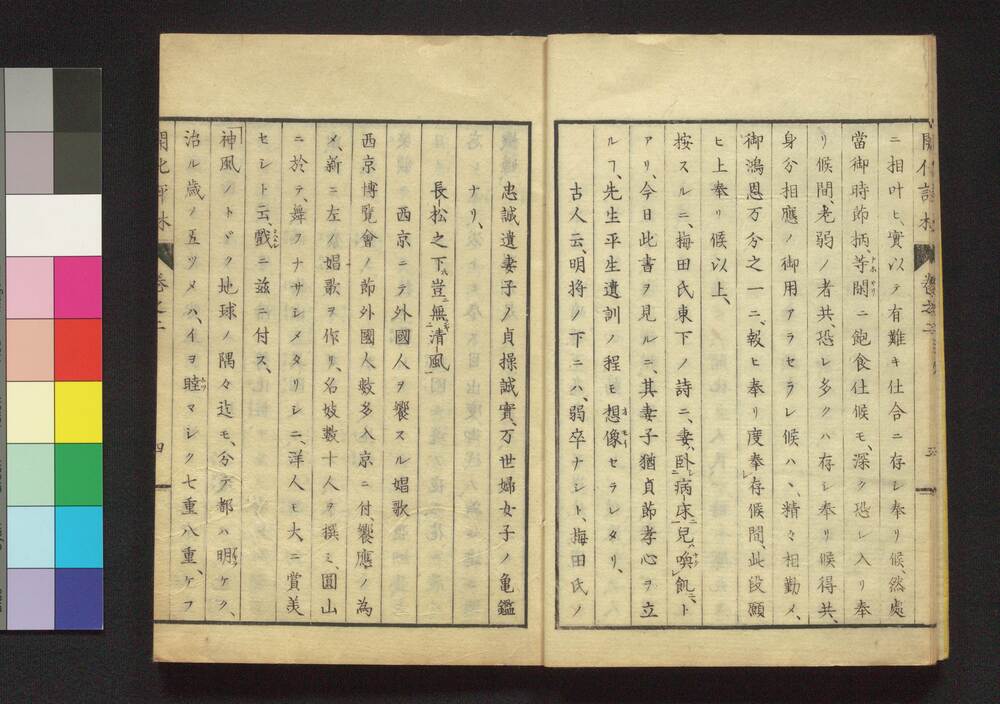 ニ相叶ヒ、實以テ有難キ仕合ニ存シ奉リ候、然處
當御時節柄、等閑ニ飽食仕候モ、深ク恐レ入リ奉
リ候間、老弱ノ者共、恐レ多クハ存シ奉リ候得共、
身分相應ノ御用アラセラレ候ハヽ、精々相勤メ、
御鴻恩万分之一ニ、報ヒ奉リ度奉レ存候間、此段願
ヒ上奉リ候以上、
按スルニ、梅田氏東下ノ詩ニ、妻ハ臥シ二病床ニ一兒ハ喚フレ飢ニト、
アリ、今日此書ヲ見ルニ、其妻子猶貞節孝心ヲ立
ルヿ、先生平生遺訓ノ程モ想像セラレタリ、
古人云、明将ノ下ニハ、弱卒ナシト、梅田氏ノ
忠誠遺妻子ノ貞操誠實、万世婦女子ノ亀鑑
ナリ、
長松之下豈ニ無ンヤ二清風一
西京ニテ外國人ヲ饗スル娼歌
西京博覽會ノ節外國人數多入京ニ付、饗應ノ為
メ、新ニ左ノ娼歌ヲ作リ、名妓數十人ヲ撰ミ、圓山
ニ於テ、舞ヲナサシメタリシニ、洋人モ大ニ賞美
セシト云、戲ニ茲ニ付ス、
「神風ノトドク地球ノ隅々迄モ、分テ都ハ明ケク、
治ル歳ノ五ツメハ、イヨ睦マシク七重八重、ケフ
卷之二
四